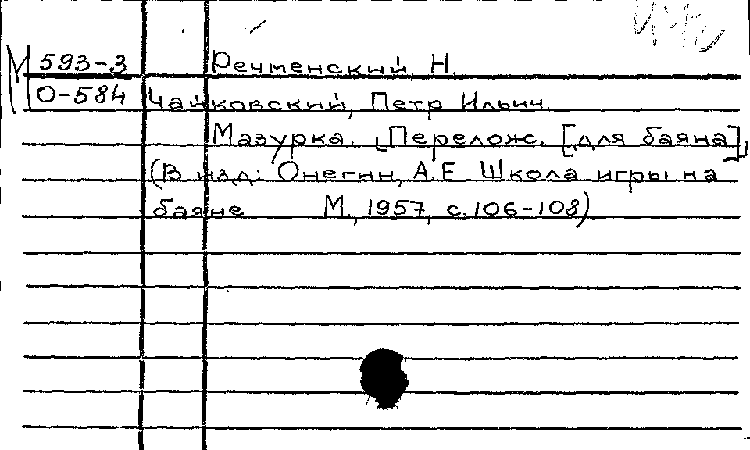 М 593-3 Речменский Н.
О-584 Чайковский, Петр Ильич.
Мазурка. [Перелож. [для баяна],
(В изд: Онегин, А.Е. Школа игры на
баяне М., 1957, с.106-108)